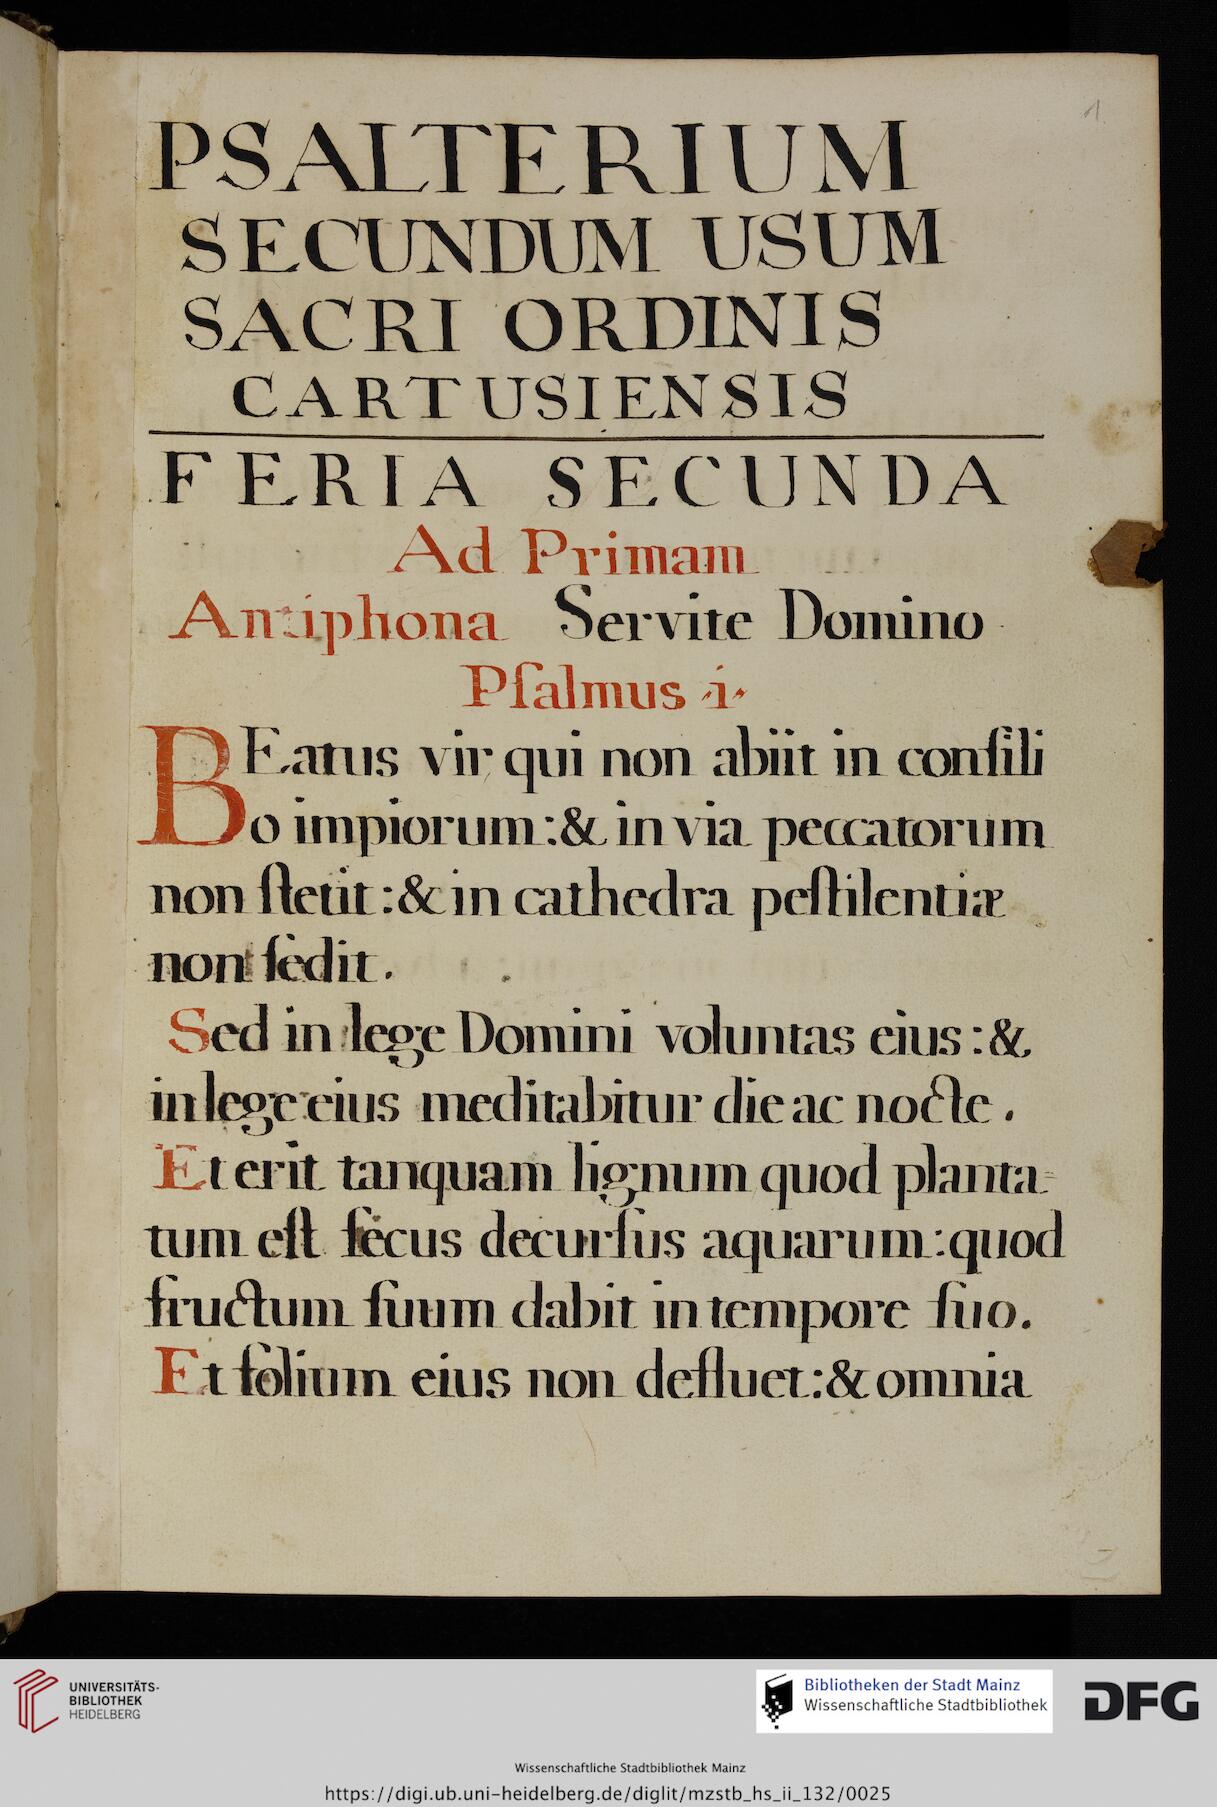 1.
PSALTERIUM
SECUNDUM USUM
SACRI ORDINIS
CARTUSIENSIS
FERIA SECUNDA
Ad Primam
Antiphona Servite Domino
Pſalmus .i.
BEatus vir qui non abiit in conſili
o impiorum:& in via peccatorum
non ſtetit:& in cathedra peſtilentiæ
non ſedit.
Sed in lege Domini voluntas eius:&
in lege eius meditabitur die ac nocte.
Et erit tanquam lignum quod planta-
tum eſt ſecus decurſus aquarum:quod
fructum ſuum dabit in tempore ſuo.
Et folium eius non defluet:& omnia
UNIVERSITÄTS-
BIBLIOTHEK
HEIDELBERG
Bibliotheken der Stadt Mainz
Wissenschaftliche Stadtbibliothek
DFG
Wissenschaftliche Stadtbibliothek Mainz
https://digi.ub.uni-heidelberg.de/diglit/mzstb_hs_ii_132/0025